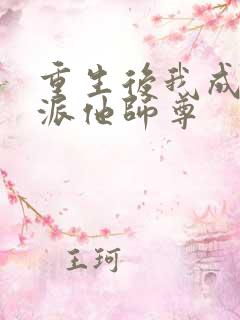 重生後我成
派他師尊
王珂